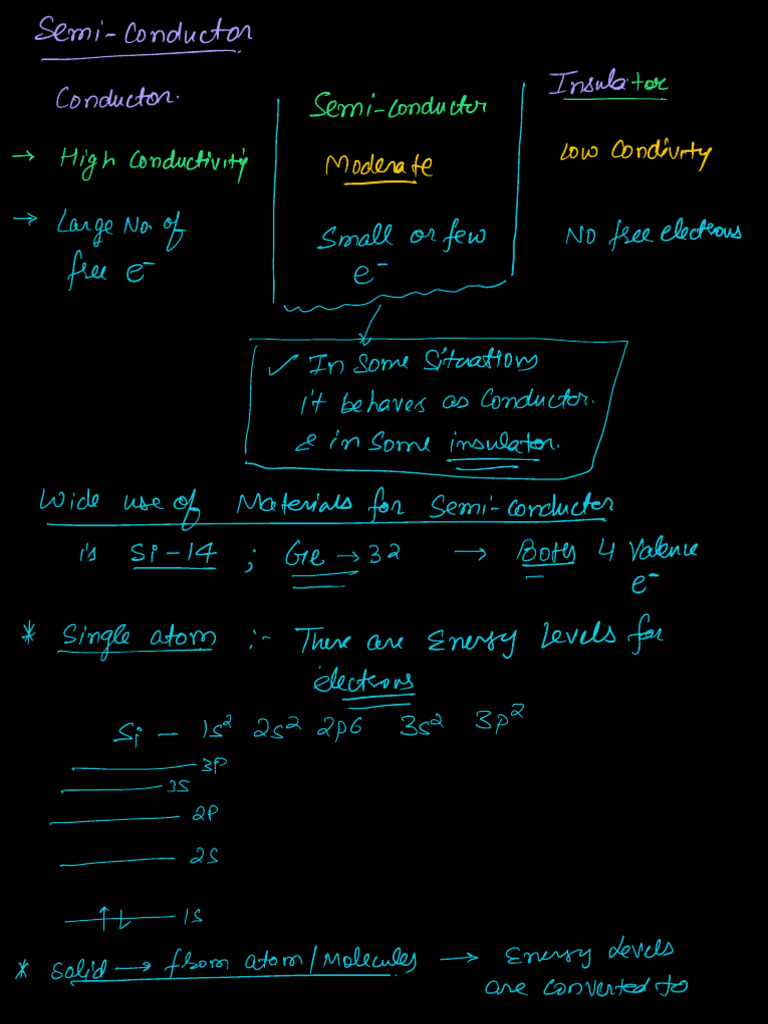 Semi-Conductor
Conductor.
Semi-Conductor
Insulator
→ High Conductivity
Moderate
Low Condivity
→ Large No. of
free e⁻
Small or few
e⁻
No free electrons
✓ In Some Situations
it behaves as Conductor.
& in Some insulator.
Wide use of Materials for Semi-conductor
is Si-14 ; Ge → 32 → Both 4 Valence
e⁻
* Single atom :- There are Energy Levels for
electrons
Si - 1s² 2s² 2p6 3s² 3p²
3P
3S
2P
2S
↑↓ 1S
* Solid → from atom/Molecules → Energy Levels
are converted to